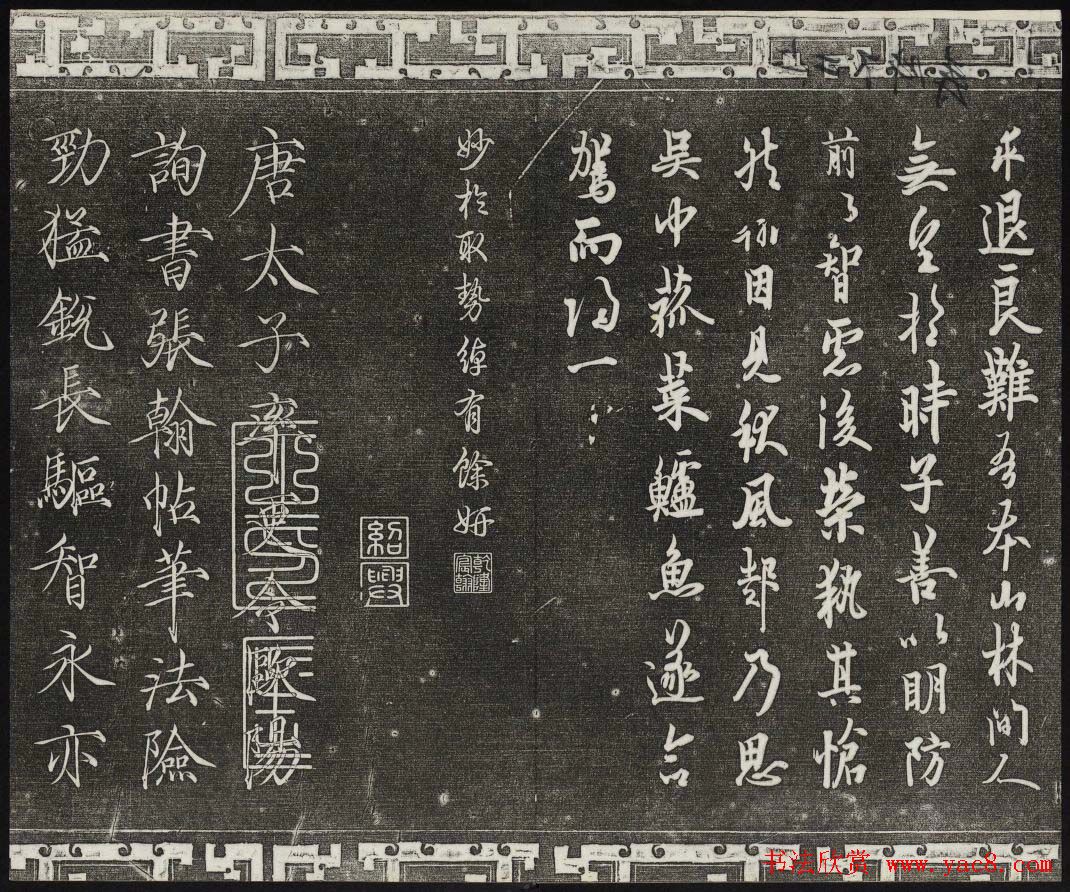 求退良難吾本山林間人
無望於時子善以明防
前以智慮後榮執其愴
然因見秋風起乃思
吳中菰菜鱸魚遂命
駕而歸
妙於取勢綽有餘妍
乾隆宸翰
紹興
唐太子率更令歐陽
詢書張翰帖筆法險
勁猛銳長驅智永亦
书法欣赏 www.yac8.com